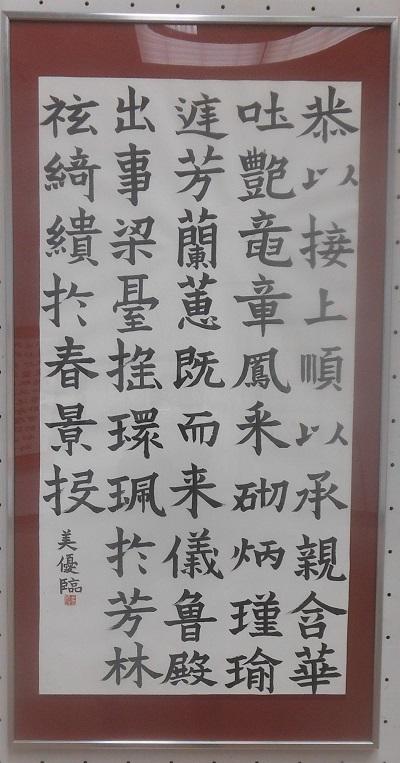 恭以接上順以承親含華
吐艶竜章鳳采砌炳瑾瑜
庭芳蘭蕙既而来儀魯殿
出事梁臺揺環珮於芳林
袨綺繢於春景投
美優臨